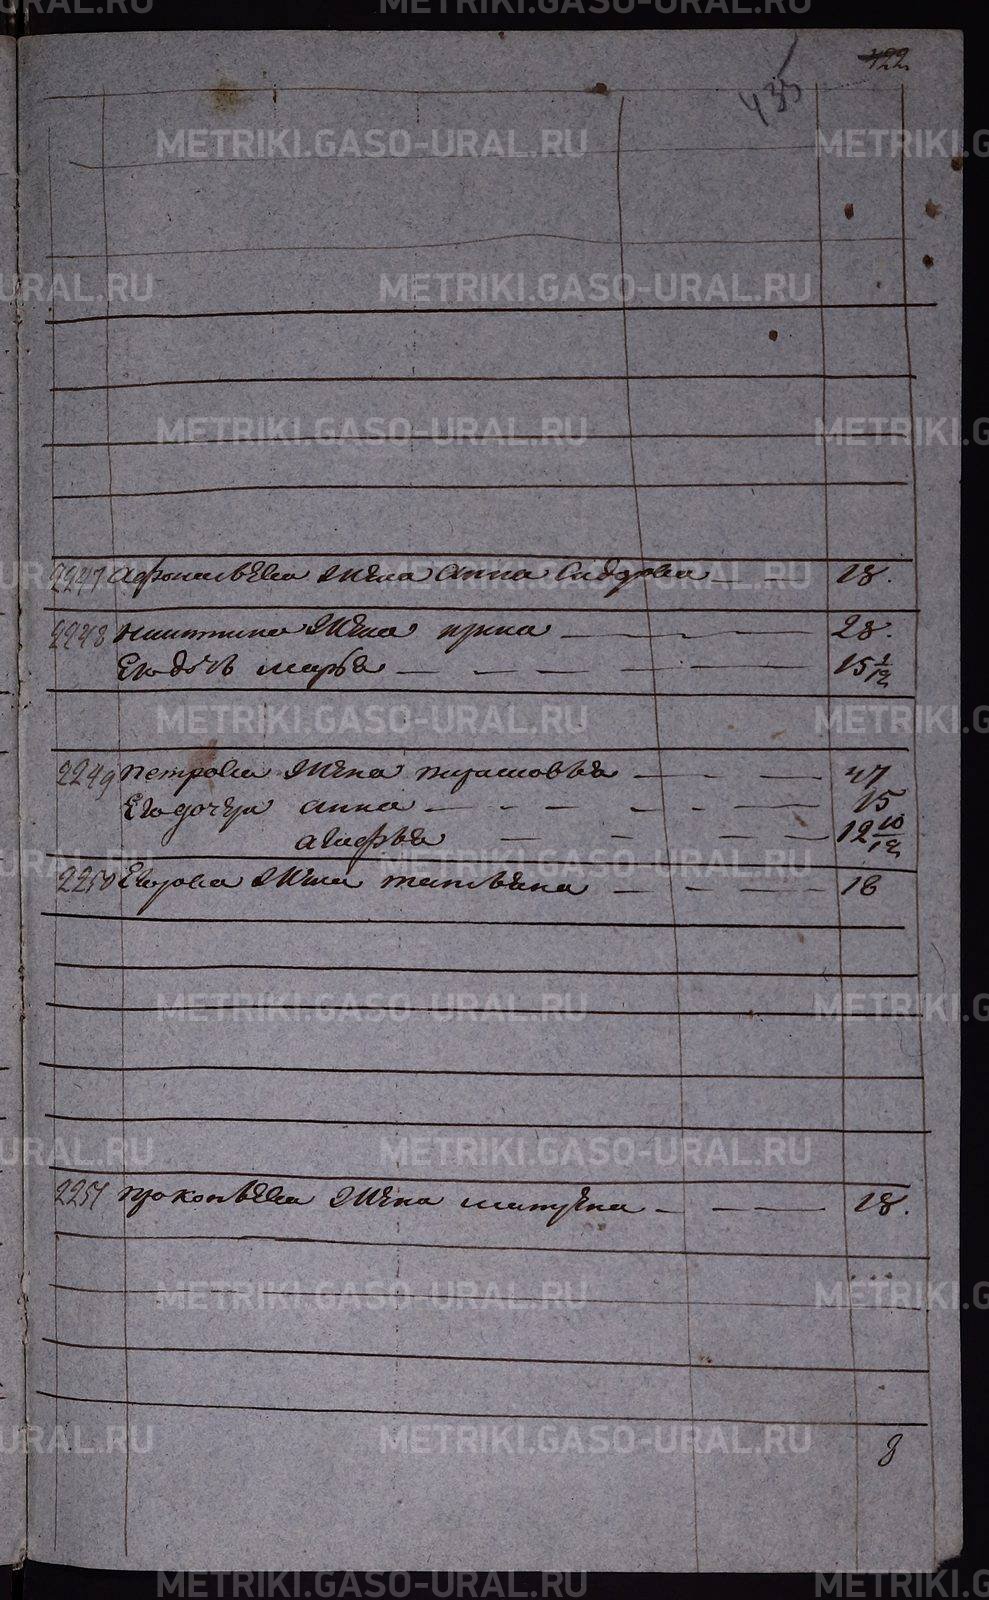 422
435
2247 Афонасьева жена Анна Сидорова 28.
2248 Никитина жена Ирина 28.
Его дочь Марья 15 1/12
2249 Петрова жена 47
Его дочери Анна 15
Агафья 12 10/12
2250 Егорова жена Татьяна 18
2251 Прокопьева жена Матрена 28.
8
METRIKI.GASO-URAL.RU